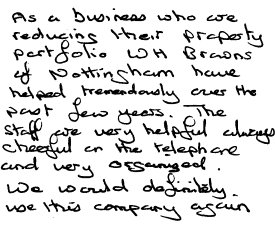 As a business who are
reducing their property
portfolio WH Browns
of Nottingham have
helped tremendously over the
past few years. The
staff are very helpful always
cheerful on the telephone
and very organised.
We would definitely.
use this company again